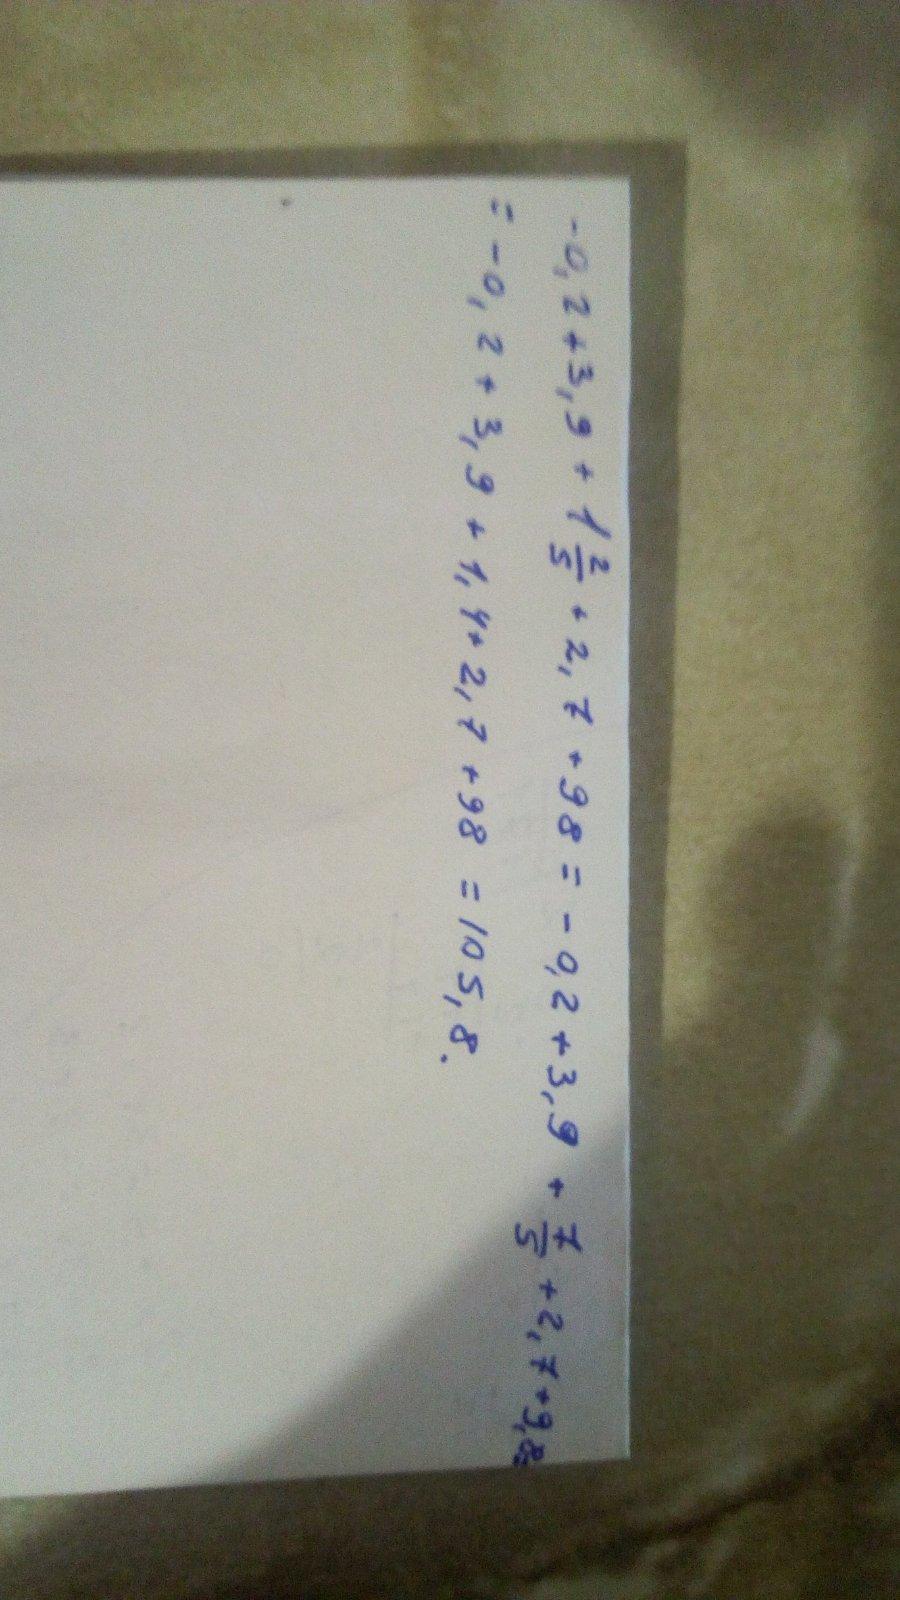 -0,2+3,9+1 2/5+2,7+98=-0,2+3,9+7/5+2,7+9,8=
=-0,2+3,9+1,4+2,7+98=105,8.